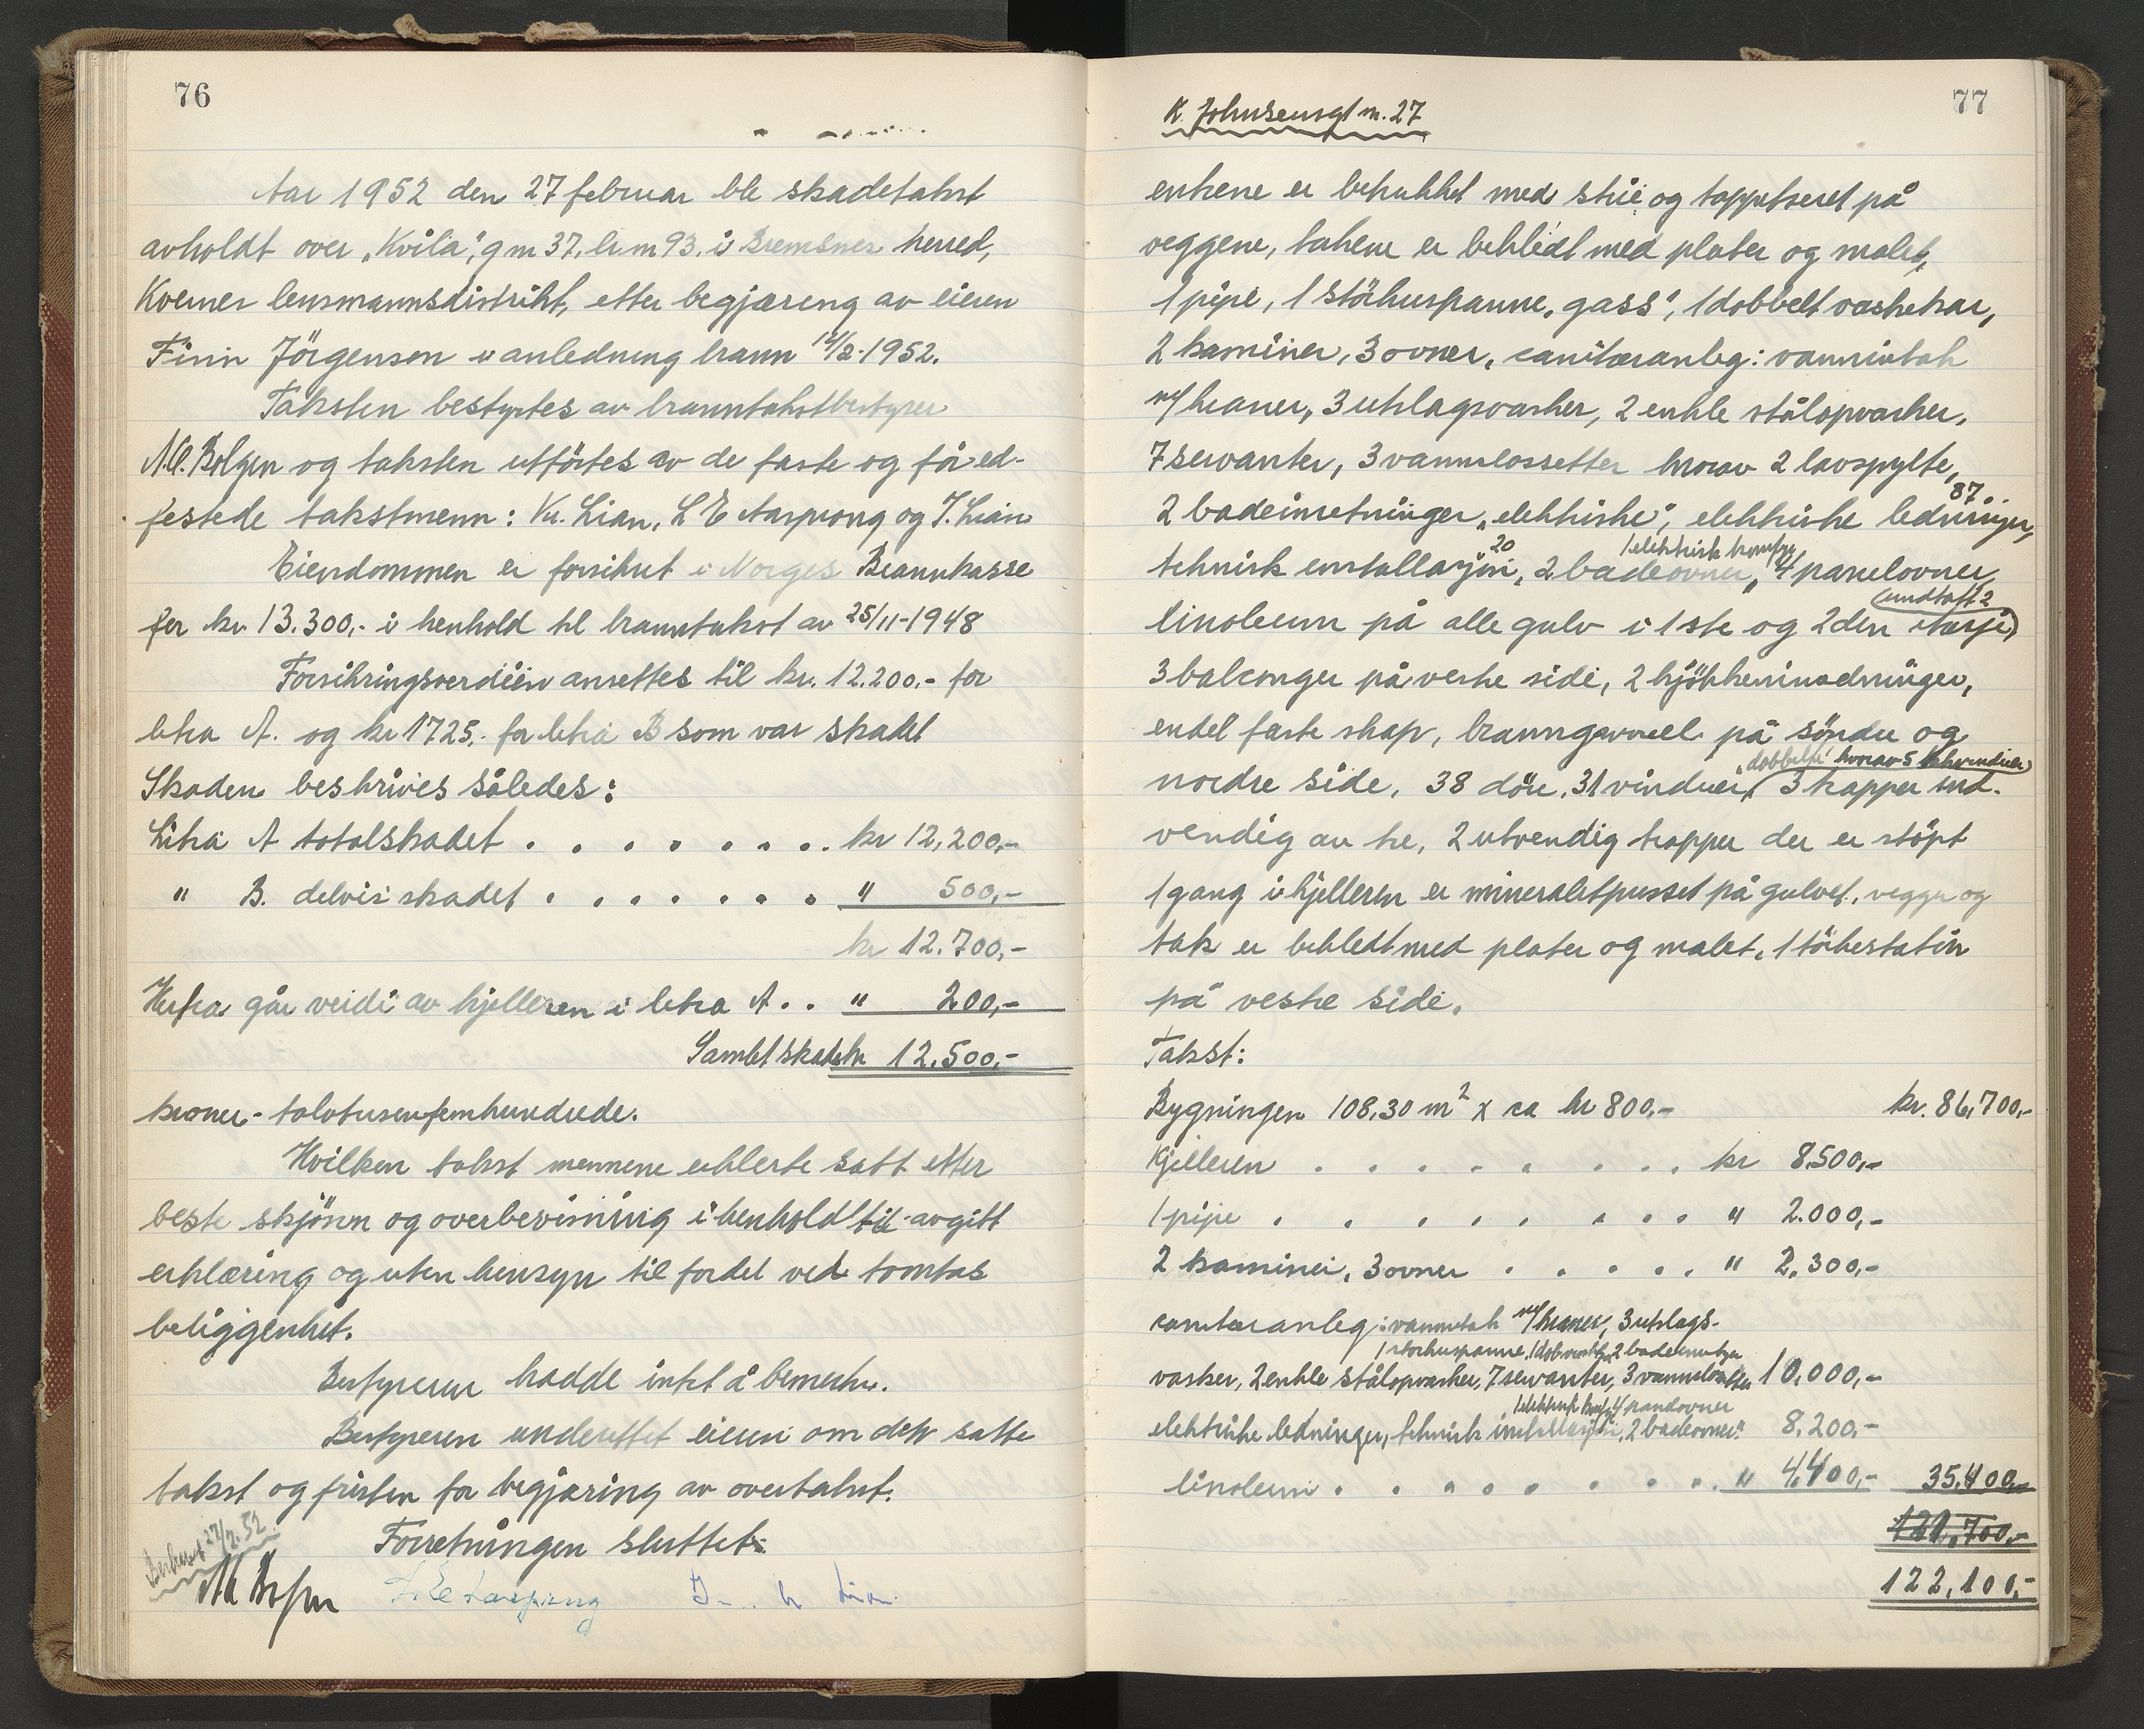 76
Aar 1952 den 27 februar ble skadetakst
avholdt over „Kvila", g nr 37, br nr 93, i Bremsnes herred,
Kvernes lensmannsdistrikt, etter begjæring av eieren
Finn Jörgensen i anledning brann 12/2-1952.
Taksten bestyrtes av branntakstbestyrer
N.O. Bolgen og taksten utförtes av de faste og för ed-
festede takstmenn: Kr. Lian, L E Aasprong og J. Lian
Eiendommen er forsikret i Norges Brannkasse
for kr. 13.300,- i henhold til branntakst av 25/11-1948
Forsikringsverdien ansettes til kr. 12.200.- for
litra A. og kr 1725,- for litra B som var skadet
Skaden beskrives således:
Litra A totalskadet . . . . . . . . kr 12,200,-
" B. delvis skadet . . . . . . . " 500,-
kr 12.700,-
Herfra går verdi av kjelleren i litra A . . " 200,-
Samlet skade kr 12.500,-
kroner - tolvtusenfemhundrede.
Hvilken takst mennene erklerte satt etter
beste skjönn og overbevisning i henhold til avgitt
erklæring og uten hensyn til fordel ved tomtas
beliggenhet.
Bestyreren hadde intet å bemerke.
Bestyreren underrettet eieren om den satte
takst og fristen for begjæring av overtakst.
Forretningen sluttet.
Beskrevet 27/2.52
L. E. Aasprong
77
K. Johnsensgt nr. 27
enkene er betrukket med strie og tappetseret på
veggene, takene er bekledt med plater og malet,
1 pipe, 1 störhuspanne „gass", 1 dobbelt vaskekar,
2 kaminer, 3 ovner, sanitæranleg: vanninntak
m/ kraner, 3 utslagsvasker, 2 enkle stålopvasker,
7 servanter, 3 vannklossetter hvorav 2 lavspylte,
87
2 badeinretninger „elektriske", elektriske ledninger,
20 1 elektrisk komfyr
teknisk enstallasjon, 2 badeovner, 4 panelovner,
undtatt 2
linoleum på alle gulv i 1ste og 2den etasje)
3 balconger på vestre side, 2 kjökkeninredninger,
endel faste skap, branngavel på söndre og
dobbelte hvorav 5
nordre side, 38 döre, 31 vinduer, 3 trapper ind-
vendig av tre, 2 utvendig trapper der er stöpt
1 gang i kjelleren er mineraletpusset på gulvet, vegger og
tak er bekledt med plater og malet, 1 törkestativ
på vestre side.
Takst:
Bygningen 108,30 m2 x ca kr 800,- kr. 86,700,-
Kjelleren . . . . . . . . kr 8.500,-
1 pipe . . . . . . . . . " 2.000,-
2 kaminer, 3 ovner . . . . . " 2,300,-
sanitæranleg: vanninntak m/ kraner, 3 utslags-
1 störhuspanne,
vasker, 2 enkle stålopvasker, 7 servanter, 3 vannklossetter 10,000,-
1 elektrisk 4 panelovner
elektriske ledninger, teknisk installasjon, 2 badeovner " 8,200,-
linoleum . . . . . . . . " 4,400,- 35,400,-
121,700,-
122,100,-